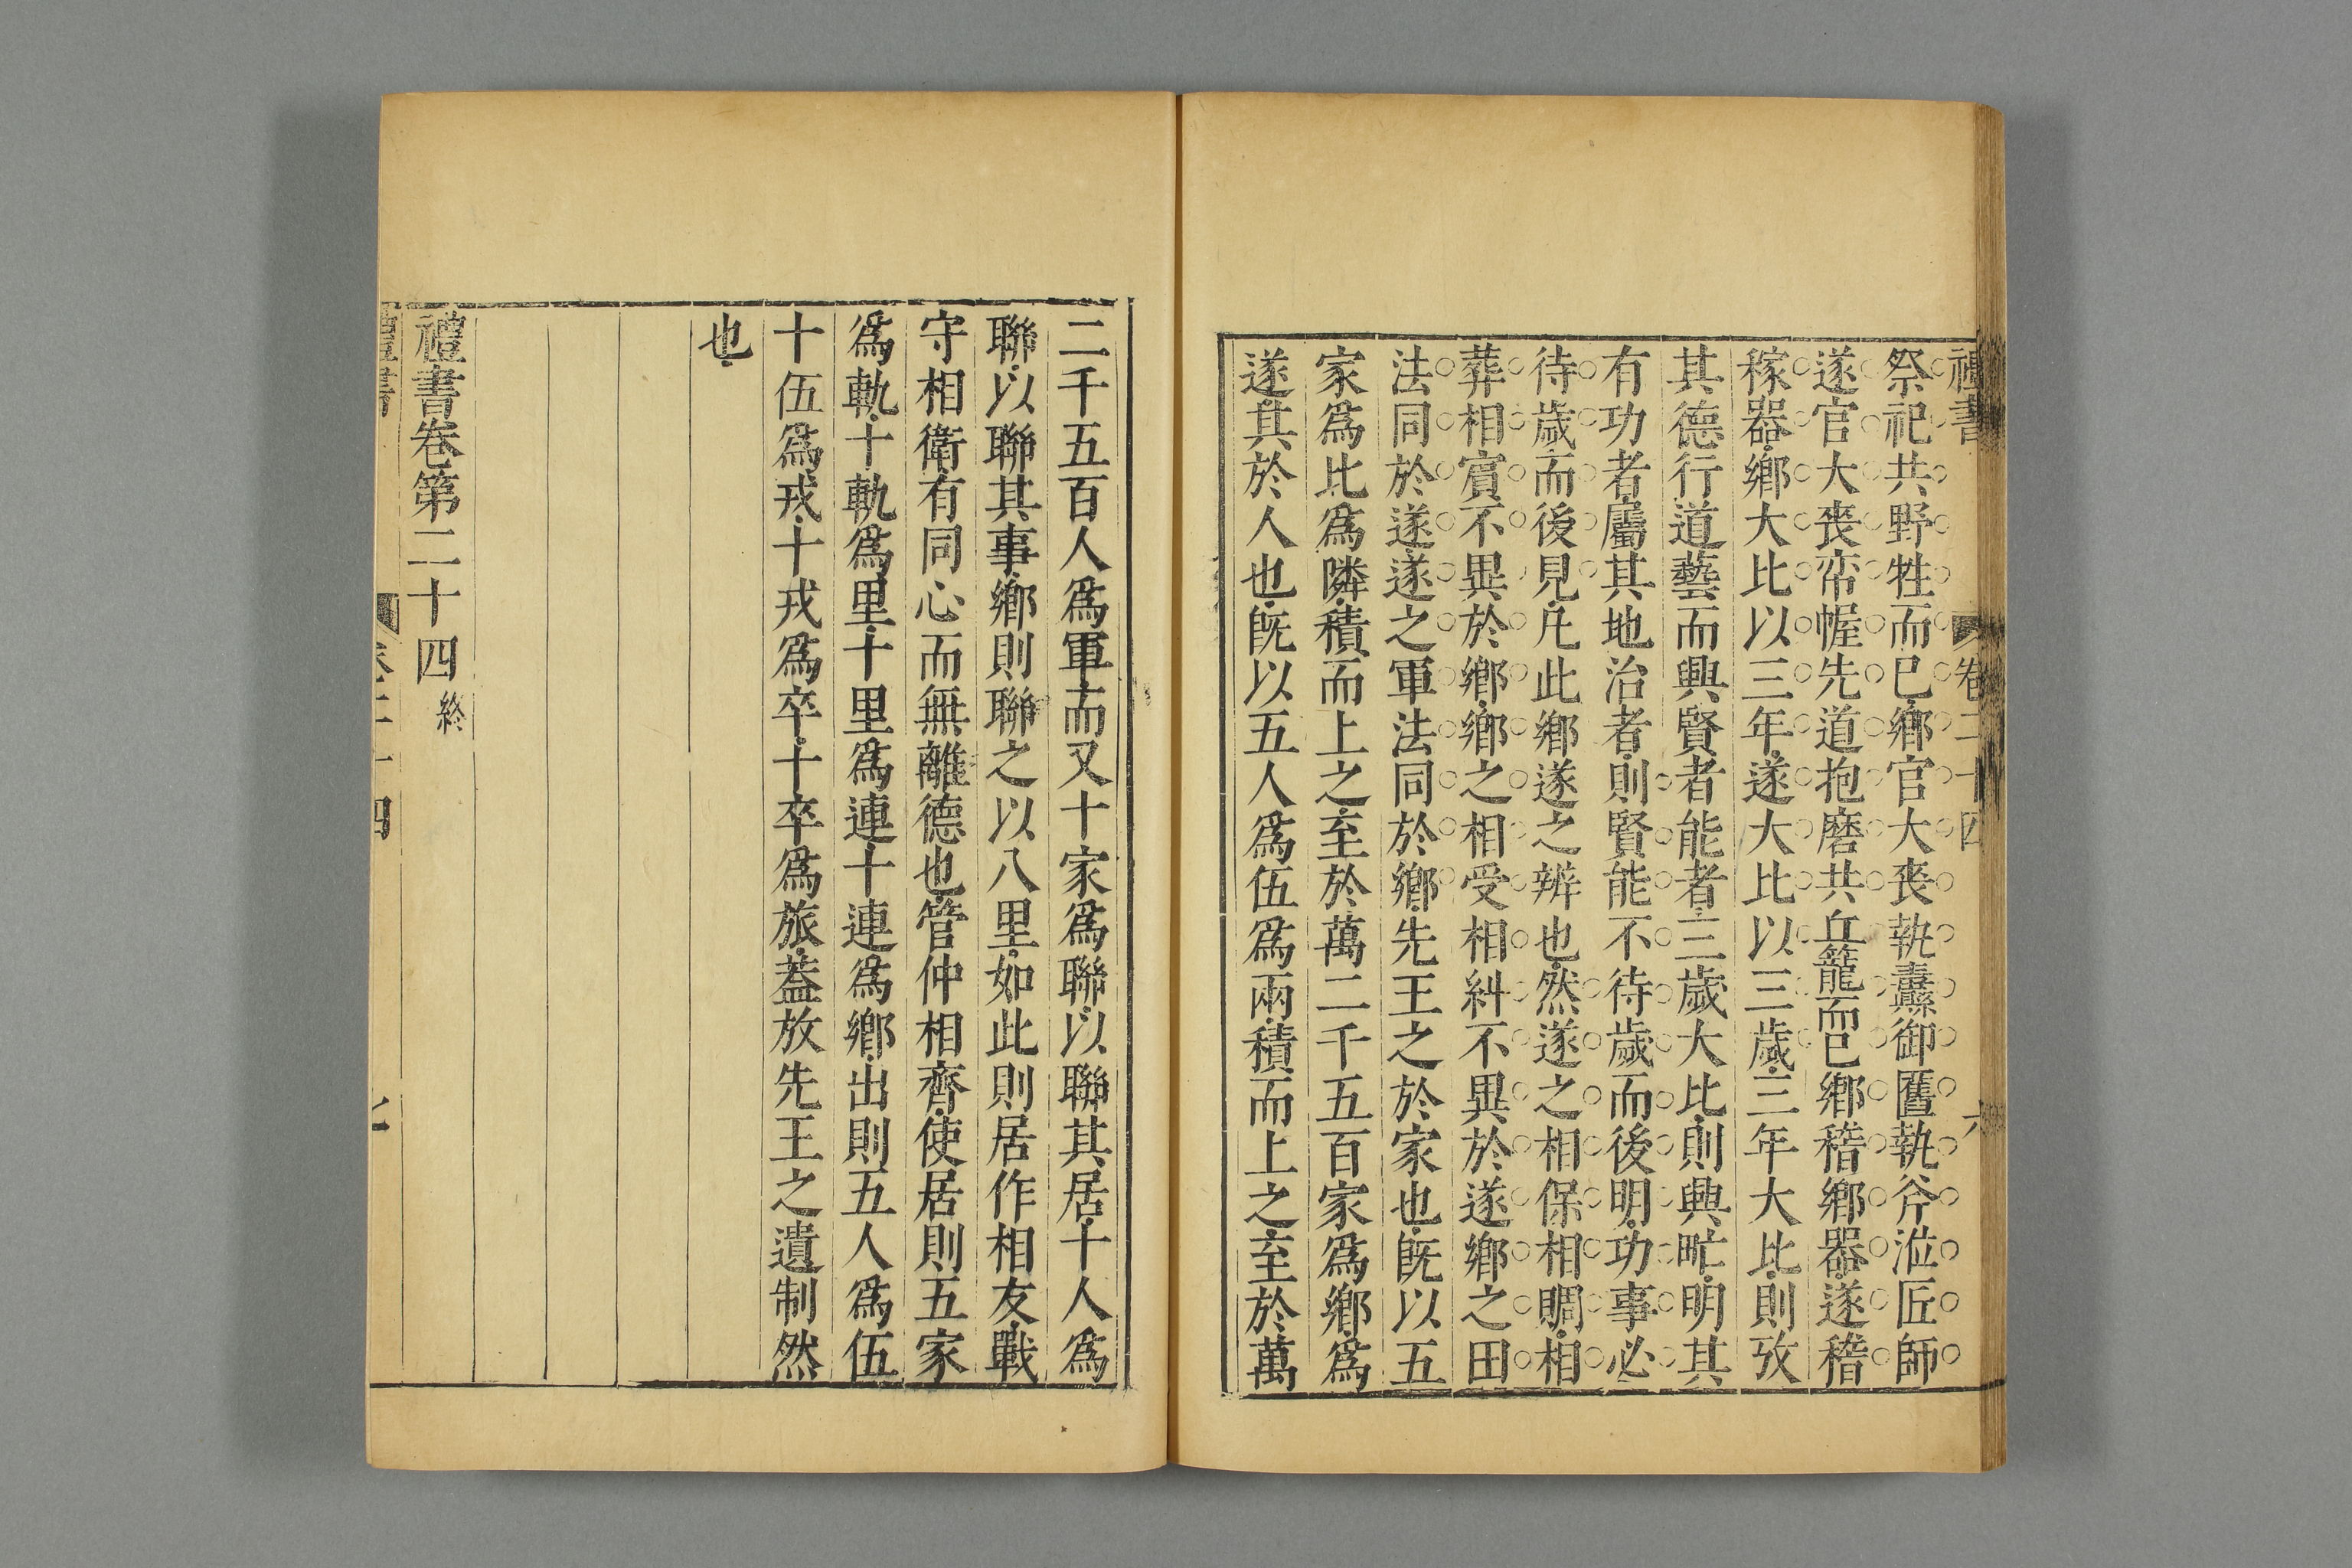 禮書 卷二十四 六
祭祀共野牲而已鄉官大喪執纛御匶執斧涖匠師
遂官大喪帟幄先道抱磨共丘籠而已鄉稽鄉器遂稽
稼器鄉大比以三年遂大比以三歲三年大比則攷
其德行道藝而興賢者能者三歲大比則興甿明其
有功者屬其地治者則賢能不待歲而後明功事必
待歲而後見凡此鄉遂之辨也然遂之相保相賙相
葬相賔不異於鄉鄉之相受相糾不異於遂鄉之田
法同於遂遂之軍法同於鄉先王之於家也既以五
家爲比爲隣積而上之至於萬二千五百家爲鄉爲
遂其於人也既以五人爲伍爲兩積而上之至於萬
二千五百人爲軍而又十家爲聯以聯其居十人爲
聯以聯其事鄉則聯之以八里如此則居作相友戰
守相衛有同心而無離德也管仲相齊使居則五家
爲軌十軌爲里十里爲連十連爲鄉出則五人爲伍
十伍爲戎十戎爲卒十卒爲旅蓋放先王之遺制然
也
禮書卷第二十四 終
禮書 卷二十四